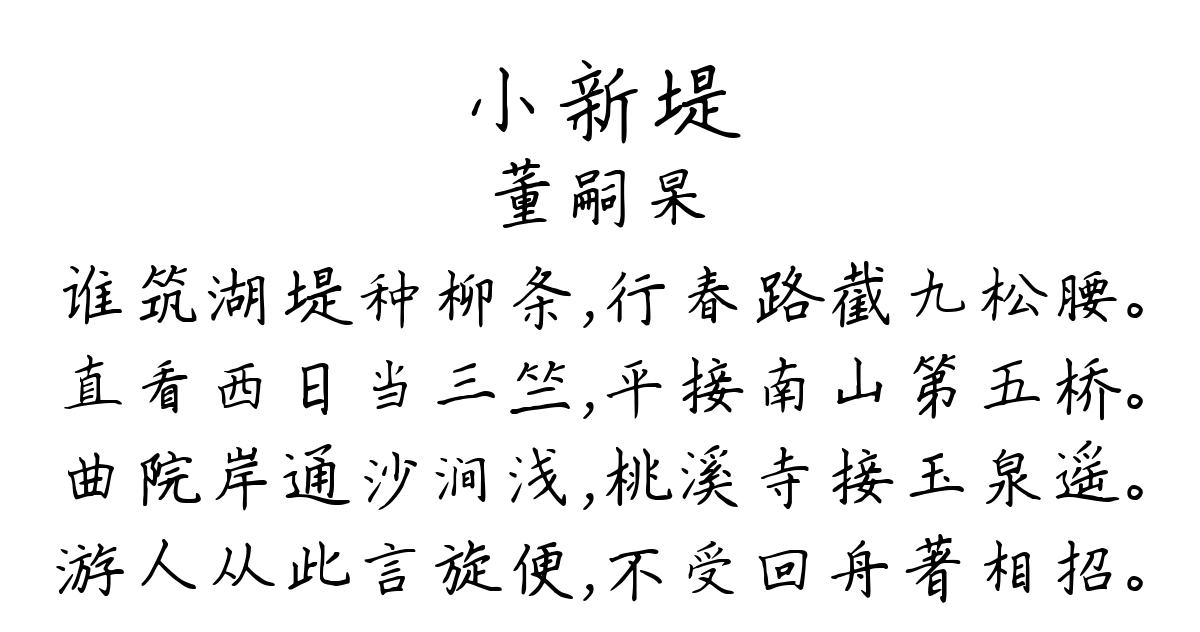 小新堤
董嗣杲
谁筑湖堤种柳条,行春路截九松腰。
直看西日当三竺,平接南山第五桥。
曲院岸通沙涧浅,桃溪寺接玉泉遥。
游人从此言旋便,不受回舟著相招。